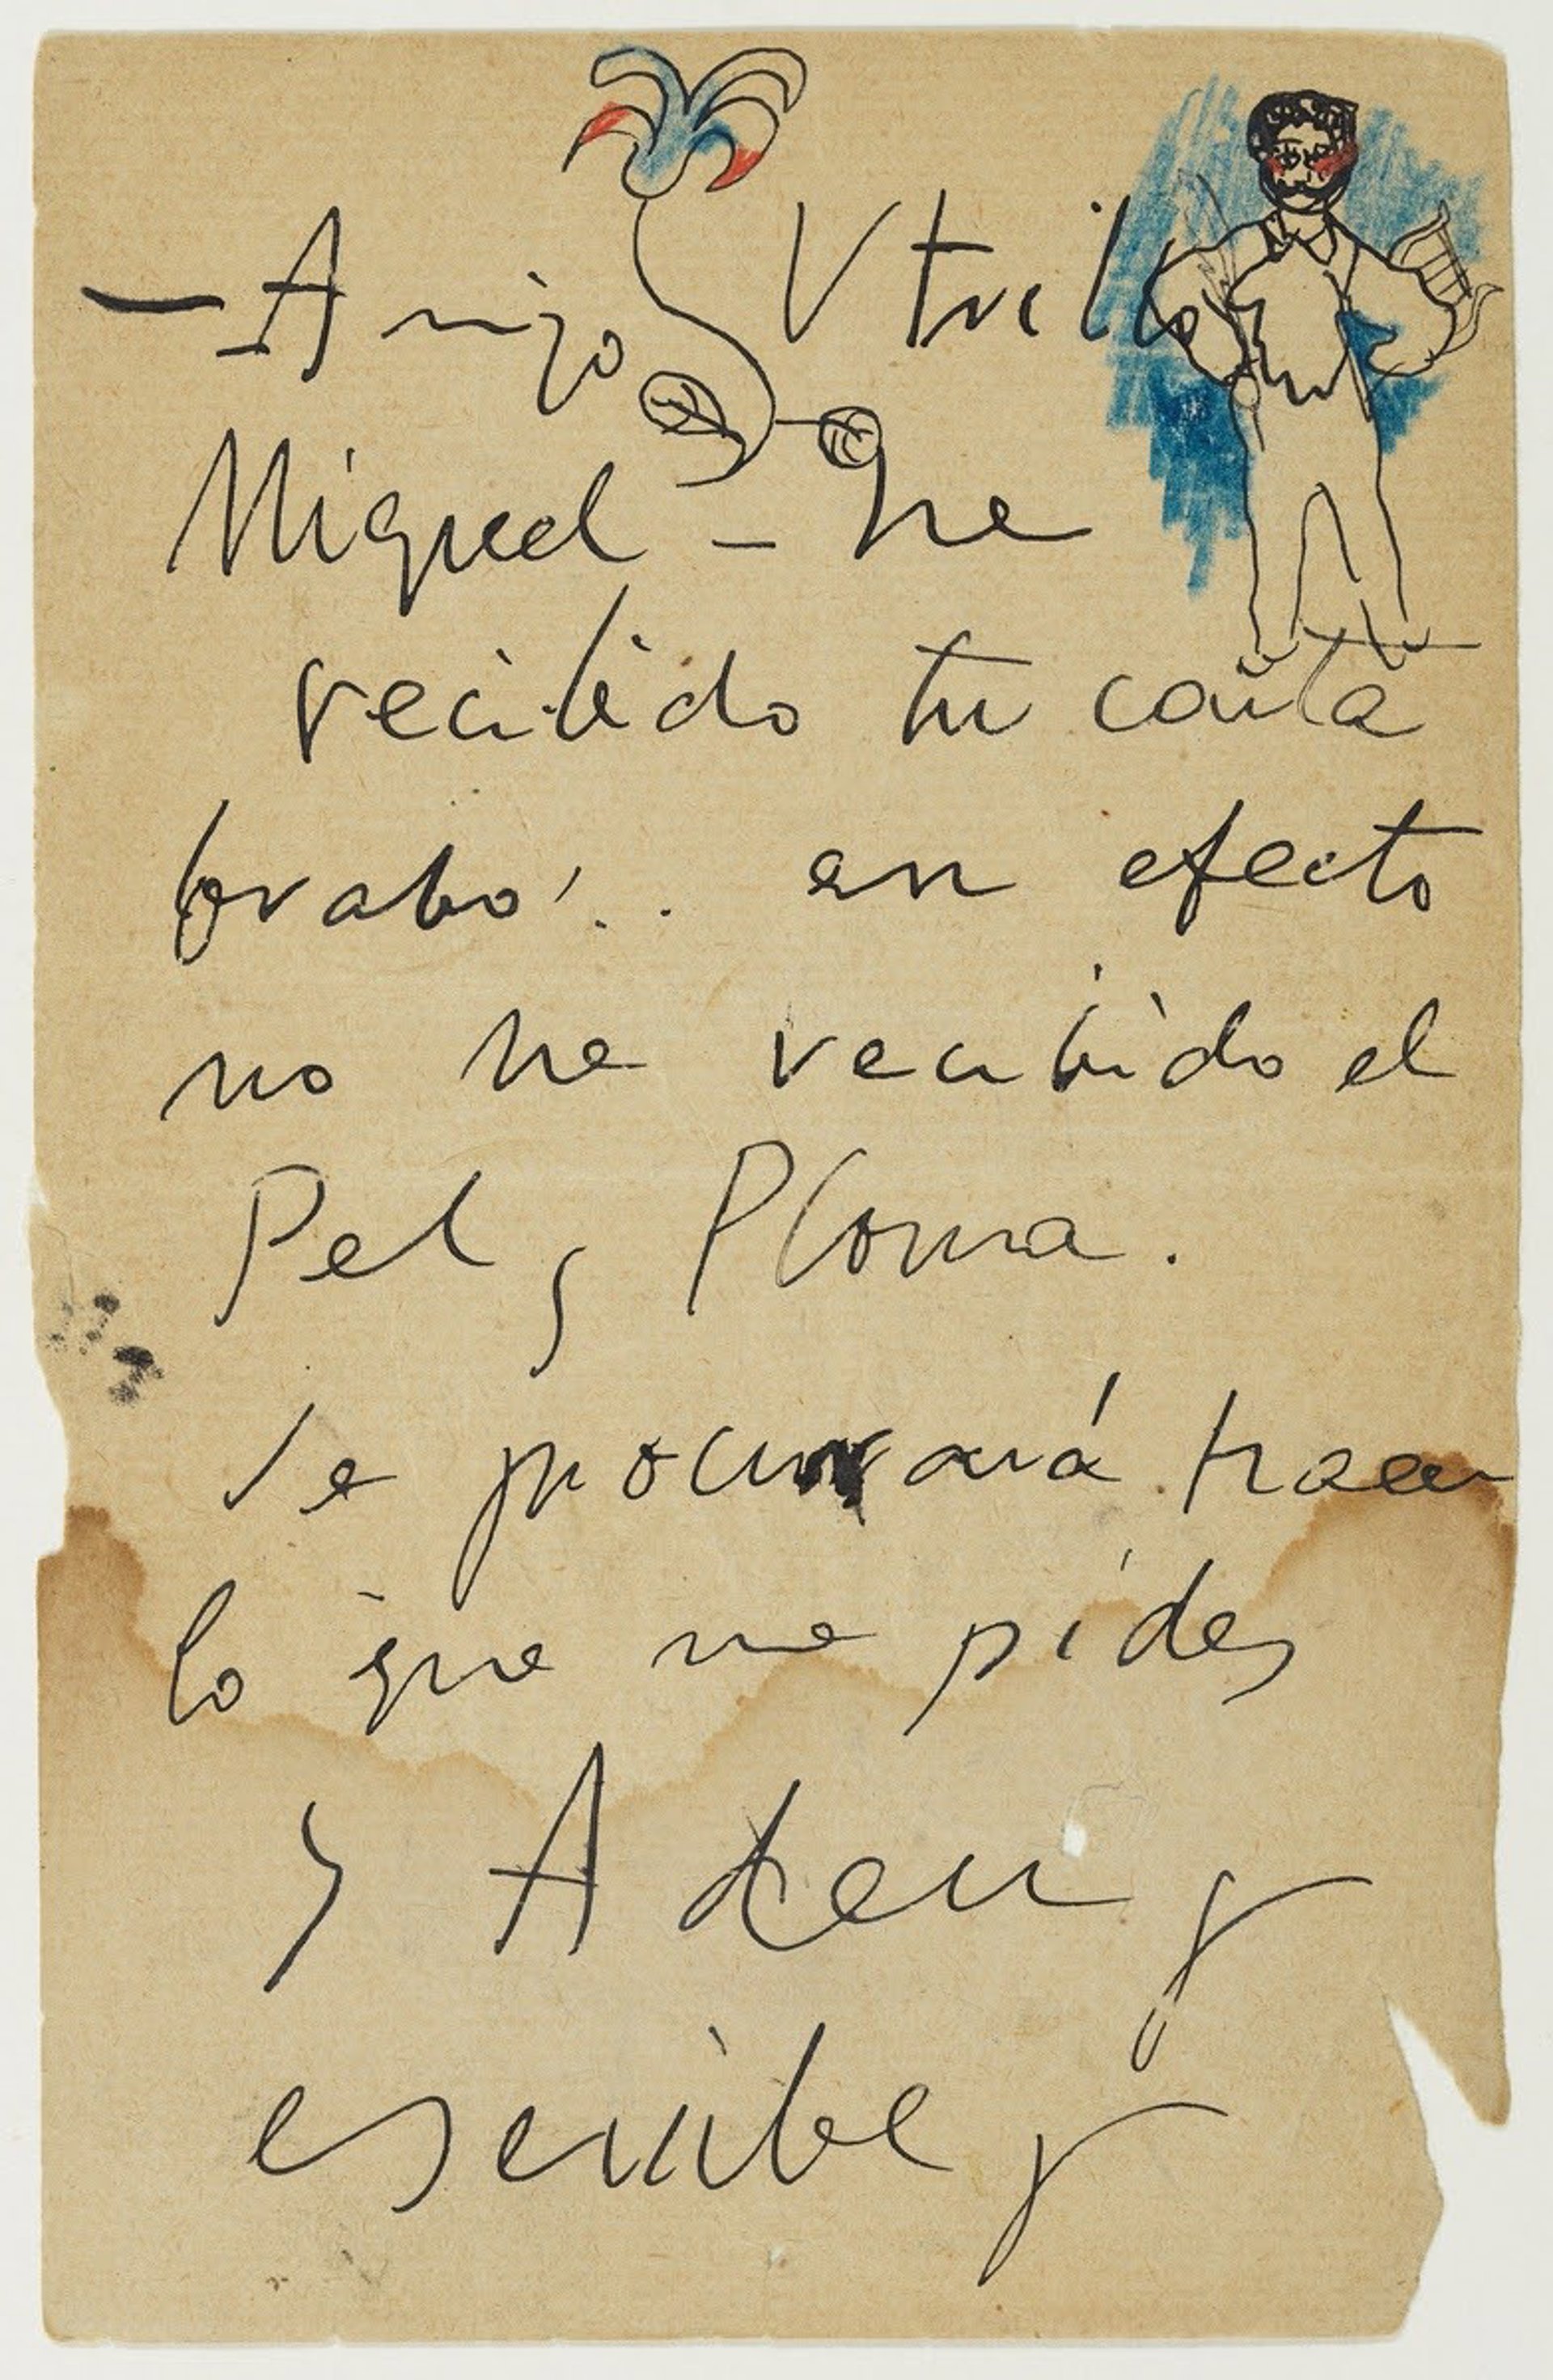 — Amigo Utrillo
Miguel – he
recibido tu carta
brabo!.. en efecto
no he recibido el
Pel y Ploma.
Se procurará hacer
lo que me pides
y Adeu y
escribe y